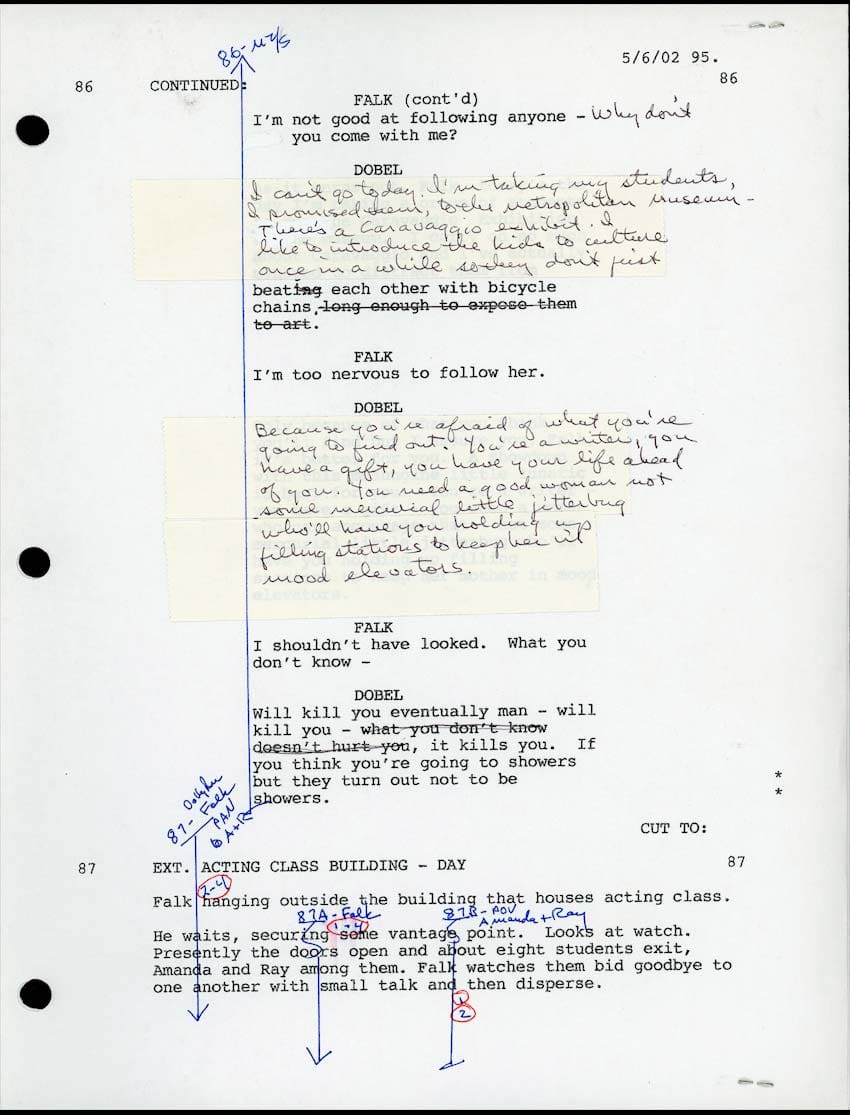 86-M2/S
5/6/02 95.
86 CONTINUED: 86
FALK (cont'd)
I'm not good at following anyone – Why don't
you come with me?
DOBEL
I can't go today. I'm taking my students,
I promised them, to the Metropolitan Museum –
There's a Caravaggio exhibit. I
like to introduce the kids to culture
once in a while so they don't just
beating each other with bicycle
chains, long enough to expose them
to art.
FALK
I'm too nervous to follow her.
DOBEL
Because you're afraid of what you're
going to find out. You're a writer, you
have a gift, you have your life ahead
of you. You need a good woman not
some mercurial little jitterbug
who'll have you holding up
filling stations to keep her in
mood elevators.
mother in
elevators.
FALK
I shouldn't have looked. What you
don't know –
DOBEL
Will kill you eventually man – will
kill you – what you don't know
doesn't hurt you, it kills you. If
you think you're going to showers
but they turn out not to be *
showers. *
87- Falk
PAN
A+R
CUT TO:
87 EXT. ACTING CLASS BUILDING – DAY 87
2-4
Falk hanging outside the building that houses acting class.
87A-Falk 87B-POV
1-4 Amanda+Ray
He waits, securing some vantage point. Looks at watch.
Presently the doors open and about eight students exit,
Amanda and Ray among them. Falk watches them bid goodbye to
one another with small talk and then disperse.
1
2